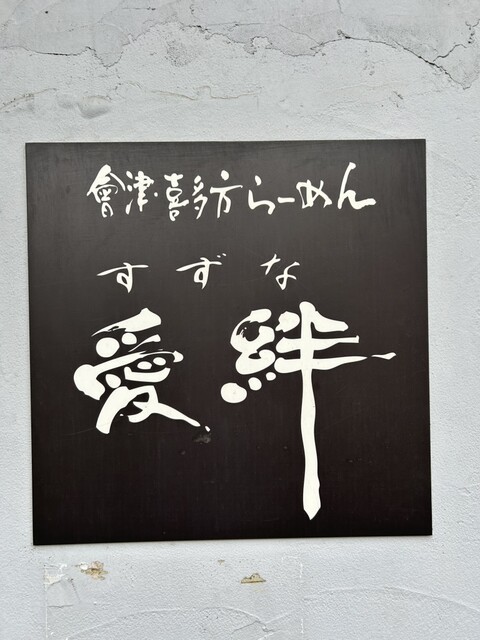 會津喜多方らーめん
すずな
愛絆